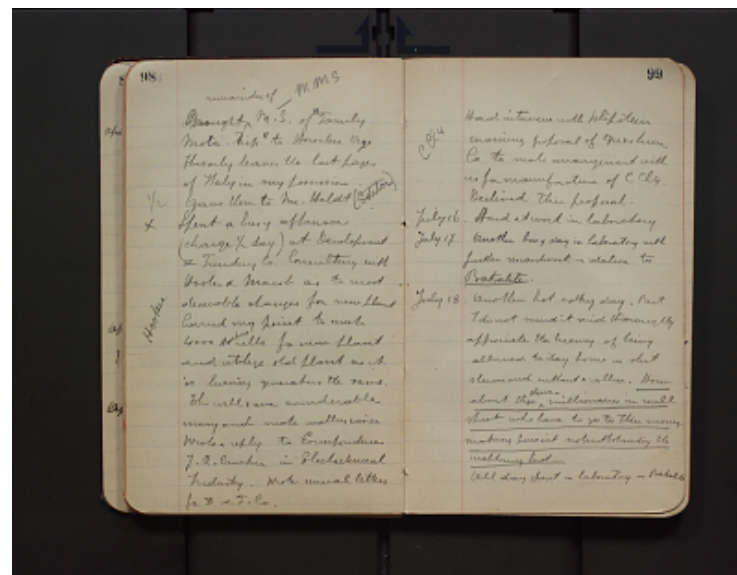 98
remainder of MMS
Brought M.S. of "Family
Motor Trip" to Horseless Age
Thereby leaves the last pages
of Italy in my possession
Gave them to Mr. (Editor)
1/2
x Spent a busy afternoon
(charge 1/2 day) at Development
& Funding Co. Consulting with
Hooker & Marsh as to most
desirable changes for new plant
Hooker
Carried my point to make
4000 cells for new plant
and utilize old plant as it
is leaving generators the same.
This will save considerable
money and make matters
Wrote reply to Correspondence
in Electrochemical
Industry. Wrote several letters
for D & F. Co.
99
Had interview with Klipstein
C Cl4
proposal of
Co. to make arrangement with
us for manufacture of C Cl4.
Declined this proposal.
July 16. Hard at work in laboratory
July 17. Another busy day in laboratory with
further in relation to
Bakalite.
July 18. Another hot sultry day. But
I do not mind it and thoroughly
appreciate the luxury of being
allowed to stay home in shirt
sleeves and without a collar. How
about those slaves, millionaires in wall
street who have to go to their money
making pursuit notwithstanding the
sweltering heat
All day spent in laboratory